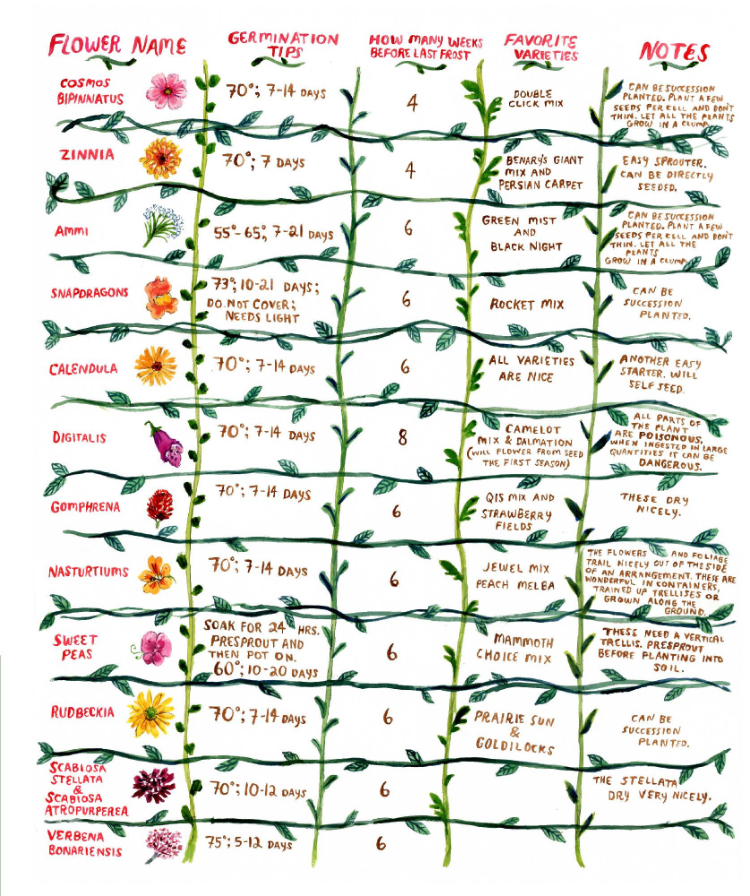 FLOWER NAME
GERMINATION
TIPS
HOW MANY WEEKS
BEFORE LAST FROST
FAVORITE
VARIETIES
NOTES
COSMOS
BIPINNATUS
70°; 7-14 DAYS
4
DOUBLE
CLICK MIX
CAN BE SUCCESSION
PLANTED. PLANT A FEW
SEEDS PER CELL AND DON'T
THIN. LET ALL THE PLANTS
GROW IN A CLUMP.
ZINNIA
70°; 7 DAYS
4
BENARY'S GIANT
MIX AND
PERSIAN CARPET
EASY SPROUTER.
CAN BE DIRECTLY
SEEDED.
AMMI
55°-65°; 7-21 DAYS
6
GREEN MIST
AND
BLACK NIGHT
CAN BE SUCCESSION
PLANTED. PLANT A FEW
SEEDS PER CELL AND DON'T
THIN. LET ALL THE
PLANTS
GROW IN A CLUMP.
SNAPDRAGONS
73°; 10-21 DAYS;
DO NOT COVER;
NEEDS LIGHT
6
ROCKET MIX
CAN BE
SUCCESSION
PLANTED.
CALENDULA
70°; 7-14 DAYS
6
ALL VARIETIES
ARE NICE
ANOTHER EASY
STARTER. WILL
SELF SEED.
DIGITALIS
70°; 7-14 DAYS
8
CAMELOT
MIX & DALMATION
(WILL FLOWER FROM SEED
THE FIRST SEASON)
ALL PARTS OF
THE PLANT
ARE POISONOUS.
WHEN INGESTED IN LARGE
QUANTITIES IT CAN BE
DANGEROUS.
GOMPHRENA
70°; 7-14 DAYS
6
QIS MIX AND
STRAWBERRY
FIELDS
THESE DRY
NICELY.
NASTURTIUMS
70°; 7-14 DAYS
6
JEWEL MIX
PEACH MELBA
THE FLOWERS AND FOLIAGE
TRAIL NICELY OUT OF THE SIDE
OF AN ARRANGEMENT. THESE ARE
WONDERFUL IN CONTAINERS,
TRAINED UP TRELLISES OR
GROWN ALONG THE
GROUND.
SWEET
PEAS
SOAK FOR 24 HRS.
PRESPROUT AND
THEN POT ON.
60°; 10-20 DAYS
6
MAMMOTH
CHOICE MIX
THESE NEED A VERTICAL
TRELLIS. PRESPROUT
BEFORE PLANTING INTO
SOIL.
RUDBECKIA
70°; 7-14 DAYS
6
PRAIRIE SUN
&
GOLDILOCKS
CAN BE
SUCCESSION
PLANTED.
SCABIOSA
STELLATA
&
SCABIOSA
ATROPURPEREA
70°; 10-12 DAYS
6
THE STELLATA
DRY VERY NICELY.
VERBENA
BONARIENSIS
75°; 5-12 DAYS
6